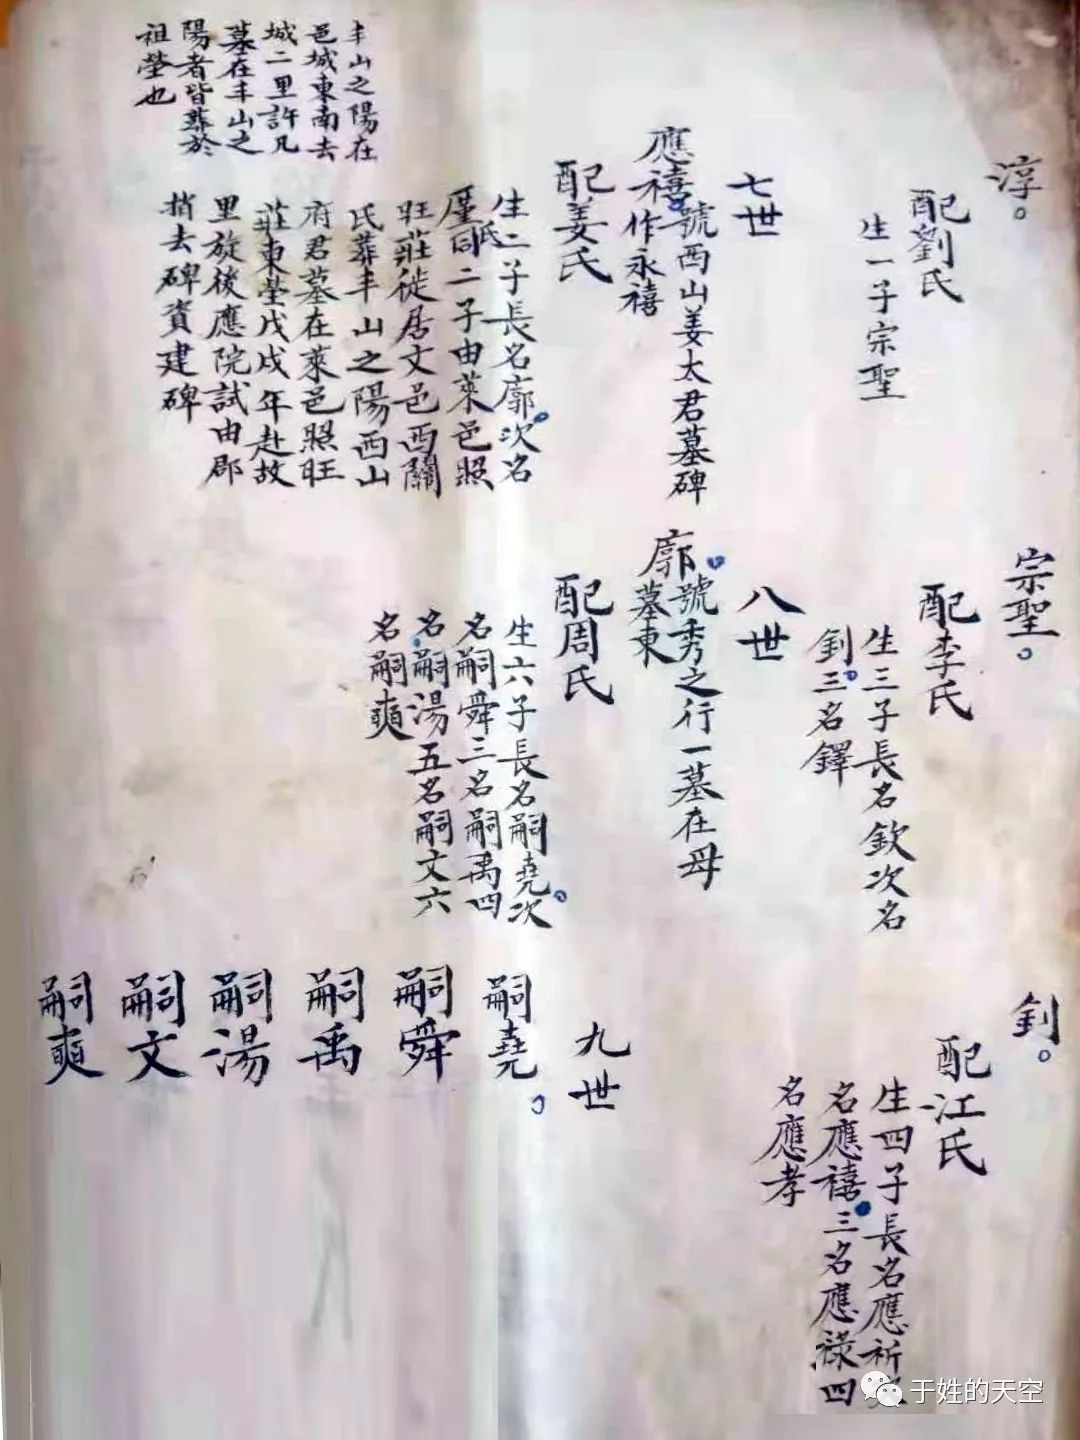 淳。
配劉氏
生一子宗聖
宗聖。
配李氏
生三子長名欽次名
釗三名鐸
釗。
配江氏
生四子長名應祈次
名應禧三名應祿四
名應孝
七世
應禧
號西山姜太君墓碑
作永禧
配姜氏
生二子長名廓次名
氏同二子由萊邑照
旺莊徙居文邑西關
氏葬丰山之陽西山
府君墓在萊邑照旺
莊東塋戊戌年赴故
里旋後應院試由郡
捎去碑資建碑
丰山之陽在
邑城東南去
城二里許凡
墓在丰山之
陽者皆葬於
祖塋也
八世
廓
號秀之行一墓在母
墓東
配周氏
生六子長名嗣堯次
名嗣舜三名嗣禹四
名嗣湯五名嗣文六
名嗣奭
九世
嗣堯
嗣舜
嗣禹
嗣湯
嗣文
嗣奭
于姓的天空